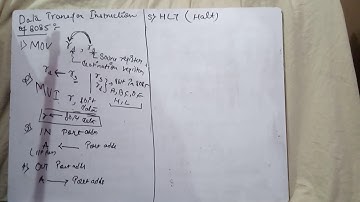 Data Transfer Instruction
of 8085:-
1) MOV rd, rs
source register
destination register
rd ← rs
2) MVI r, 8bit
data
r ← 8bit data
A, B, C, D, E
H, L
3) IN Port addr
A ← Port addr
4) OUT Port addr
A → Port addr
5) HLT (Halt)